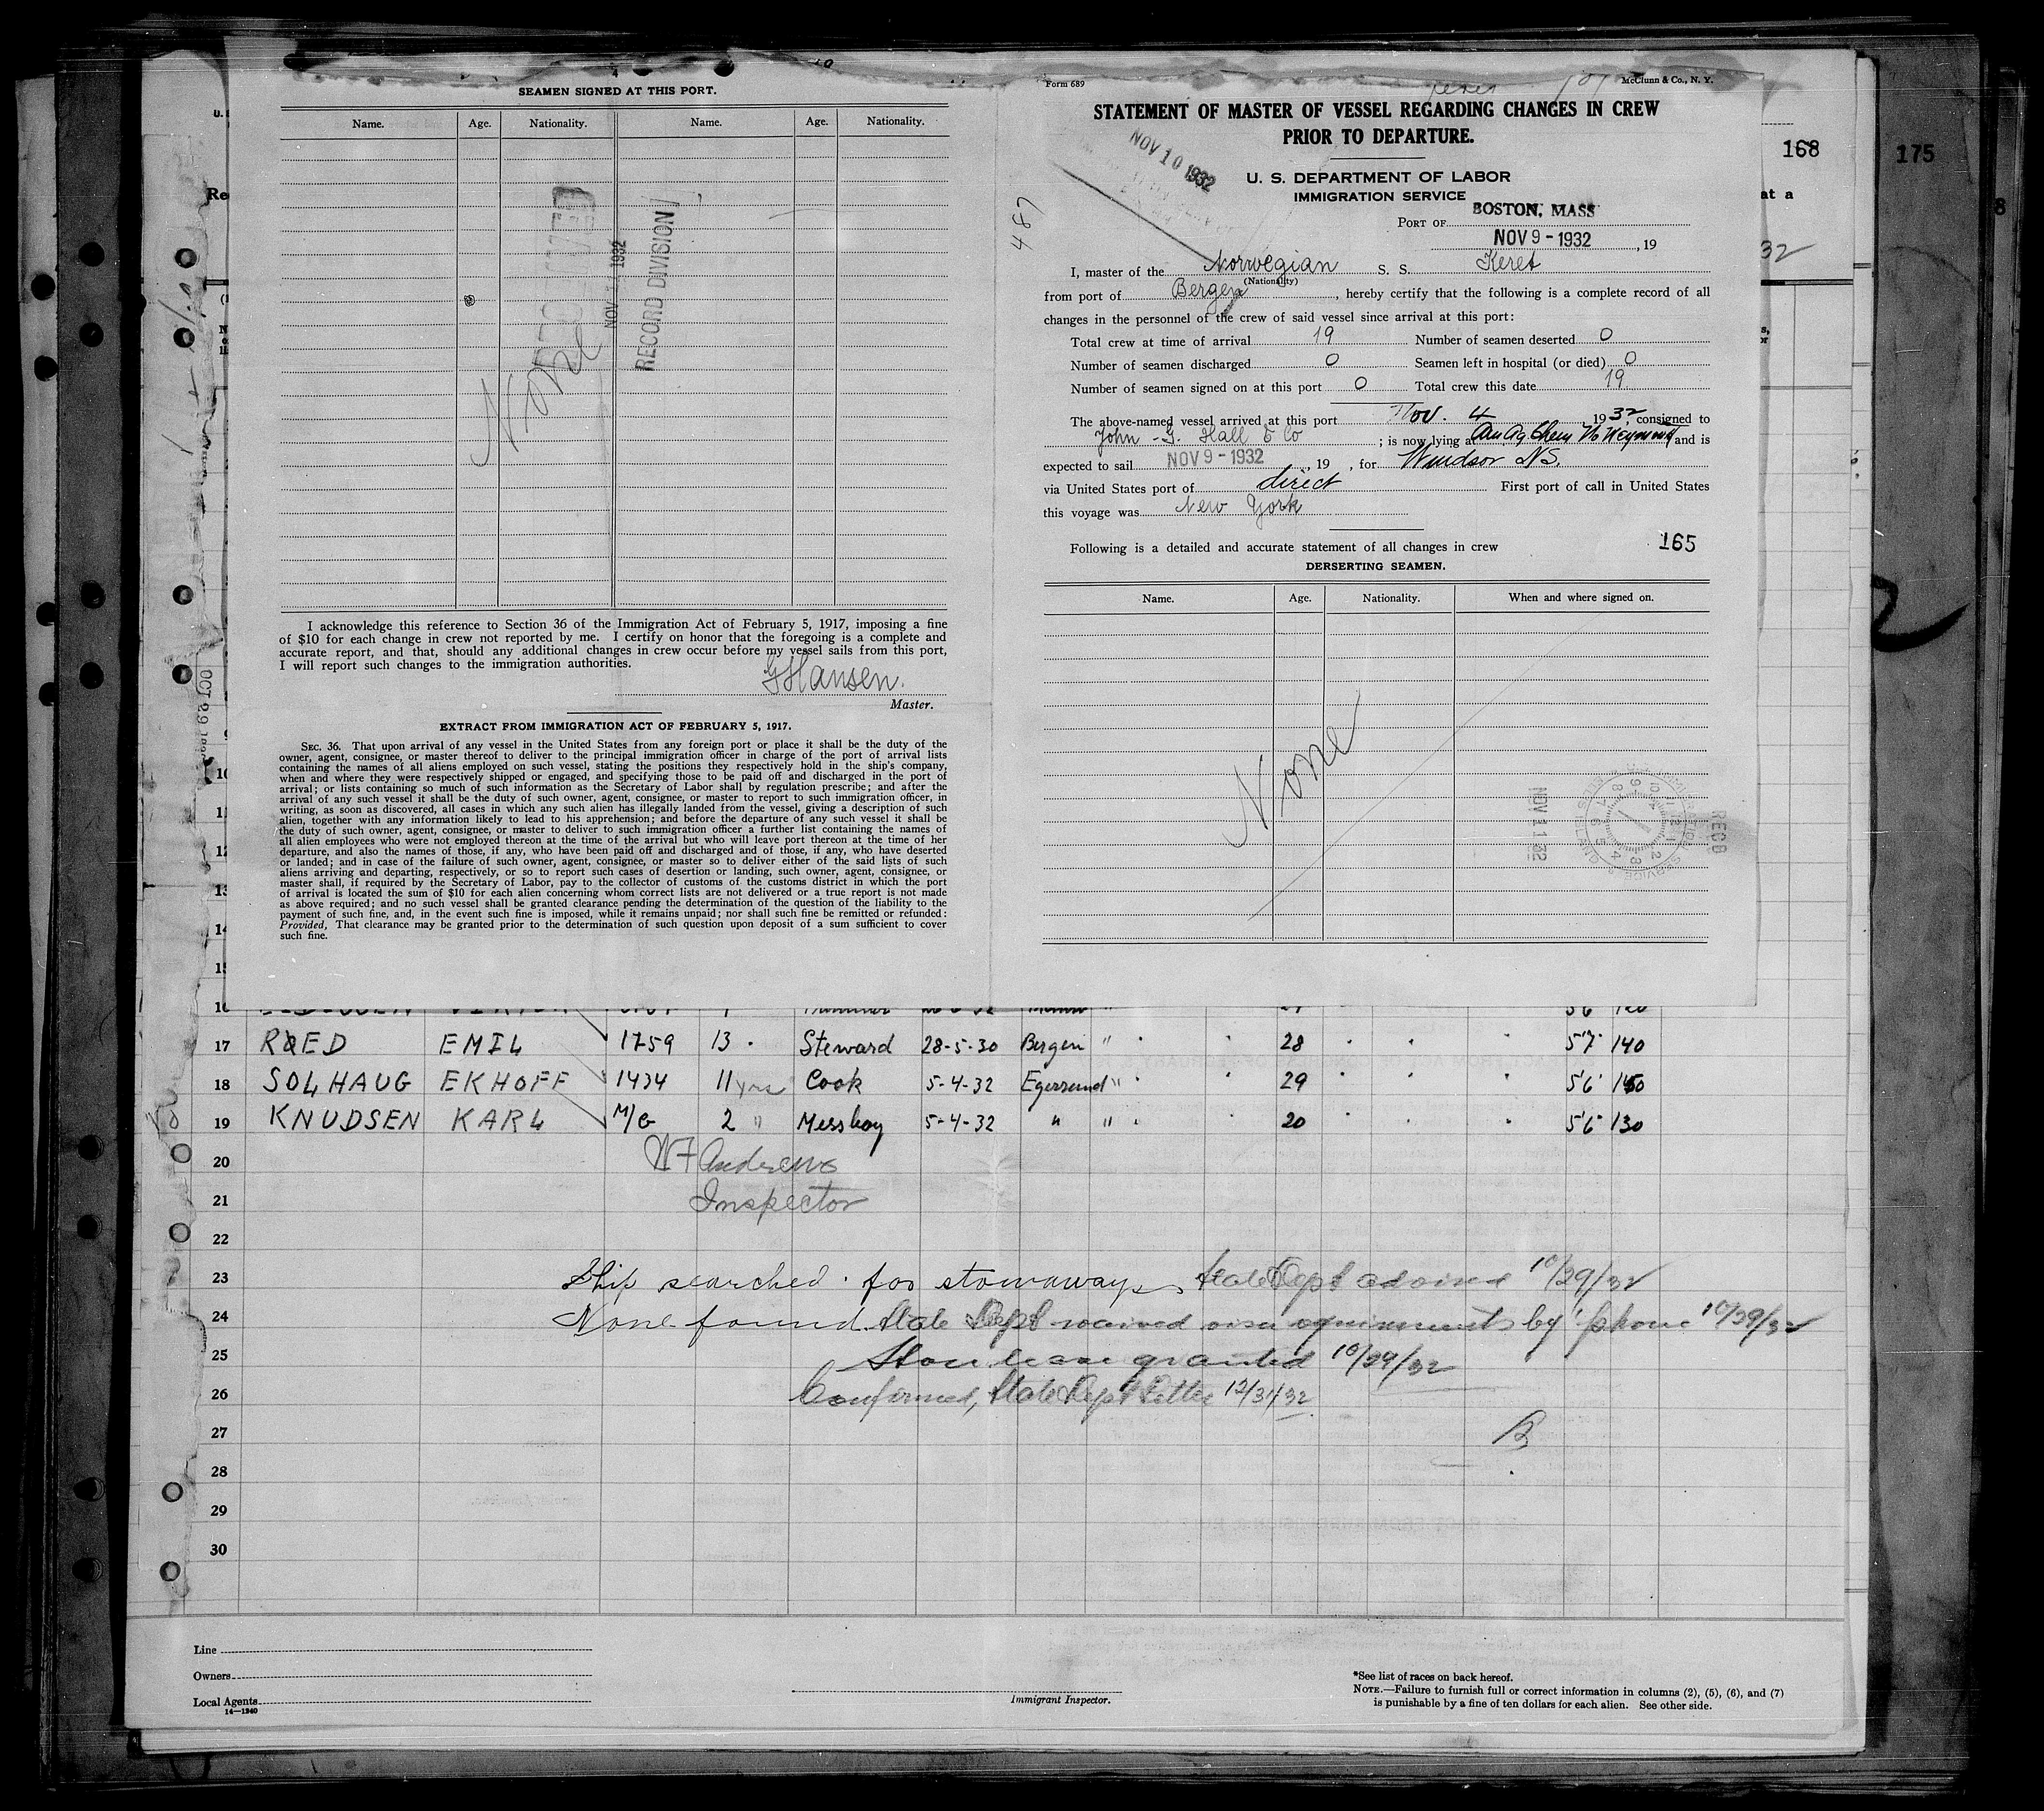 SEAMEN SIGNED AT THIS PORT.
Name. Age. Nationality. Name. Age. Nationality.
None
NOV 1932
RECORD DIVISION
I acknowledge this reference to Section 36 of the Immigration Act of February 5, 1917, imposing a fine
of $10 for each change in crew not reported by me. I certify on honor that the foregoing is a complete and
accurate report, and that, should any additional changes in crew occur before my vessel sails from this port,
I will report such changes to the immigration authorities.
G Hansen.
Master.
EXTRACT FROM IMMIGRATION ACT OF FEBRUARY 5, 1917.
SEC. 36. That upon arrival of any vessel in the United States from any foreign port or place it shall be the duty of the
owner, agent, consignee, or master thereof to deliver to the principal immigration officer in charge of the port of arrival lists
containing the names of all aliens employed on such vessel, stating the positions they respectively hold in the ship's company,
when and where they were respectively shipped or engaged, and specifying those to be paid off and discharged in the port of
arrival; or lists containing so much of such information as the Secretary of Labor shall by regulation prescribe; and after the
arrival of any such vessel it shall be the duty of such owner, agent, consignee, or master to report to such immigration officer, in
writing, as soon as discovered, all cases in which any such alien has illegally landed from the vessel, giving a description of such
alien, together with any information likely to lead to his apprehension; and before the departure of any such vessel it shall be
the duty of such owner, agent, consignee, or master to deliver to such immigration officer a further list containing the names of
all alien employees who were not employed thereon at the time of the arrival but who will leave port thereon at the time of her
departure, and also the names of those, if any, who have been paid off and discharged and of those, if any, who have deserted
or landed; and in case of the failure of such owner, agent, consignee, or master so to deliver either of the said lists of such
aliens arriving and departing, respectively, or so to report such cases of desertion or landing, such owner, agent, consignee, or
master shall, if required by the Secretary of Labor, pay to the collector of customs of the customs district in which the port
of arrival is located the sum of $10 for each alien concerning whom correct lists are not delivered or a true report is not made
as above required; and no such vessel shall be granted clearance pending the determination of the question of the liability to the
payment of such fine, and, in the event such fine is imposed, while it remains unpaid; nor shall such fine be remitted or refunded:
Provided, That clearance may be granted prior to the determination of such question upon deposit of a sum sufficient to cover
such fine.
Form 689
McClunn & Co., N. Y.
STATEMENT OF MASTER OF VESSEL REGARDING CHANGES IN CREW
PRIOR TO DEPARTURE.
NOV 10 1932
U. S. DEPARTMENT OF LABOR
IMMIGRATION SERVICE
487
PORT OF BOSTON, MASS
NOV 9 - 1932, 19
I, master of the Norwegian S. S. Keret
(Nationality)
from port of Bergen, hereby certify that the following is a complete record of all
changes in the personnel of the crew of said vessel since arrival at this port:
Total crew at time of arrival 19 Number of seamen deserted 0
Number of seamen discharged 0 Seamen left in hospital (or died) 0
Number of seamen signed on at this port 0 Total crew this date 19
The above-named vessel arrived at this port Nov. 4 1932, consigned to
John G. Hall & Co; is now lying at Am Ag Chem No Weymouth and is
expected to sail NOV 9 - 1932, 19, for Windsor N.S.
via United States port of direct First port of call in United States
this voyage was New York
Following is a detailed and accurate statement of all changes in crew
165
DERSERTING SEAMEN.
Name. Age. Nationality. When and where signed on.
None
NOV 11 32
REC'D
168
175
at a
32
Re
OCT 29
10
11
12
13
14
15
16
17 RØED EMIL 1759 13 Steward 28-5-30 Bergen " 28 5'7" 140
18 SOLHAUG EKHOFF 1434 11 yrs Cook 5-4-32 Egersund " 29 5'6" 150
19 KNUDSEN KARL M/G 2 " Messboy 5-4-32 " " 20 5'6" 130
20 W F Andrews
21 Inspector
22
23 Ship searched for stowaways State Dept advised 10/29/32
24 None found State Dept waived visa requirements by 'phone 10/29/32
25 Shore leave granted 10/29/32
26 Confirmed, State Dept Letter 12/31/32
27 B
28
29
30
Line
Owners
Local Agents
14—1240
Immigrant Inspector.
*See list of races on back hereof.
NOTE.—Failure to furnish full or correct information in columns (2), (5), (6), and (7)
is punishable by a fine of ten dollars for each alien. See other side.